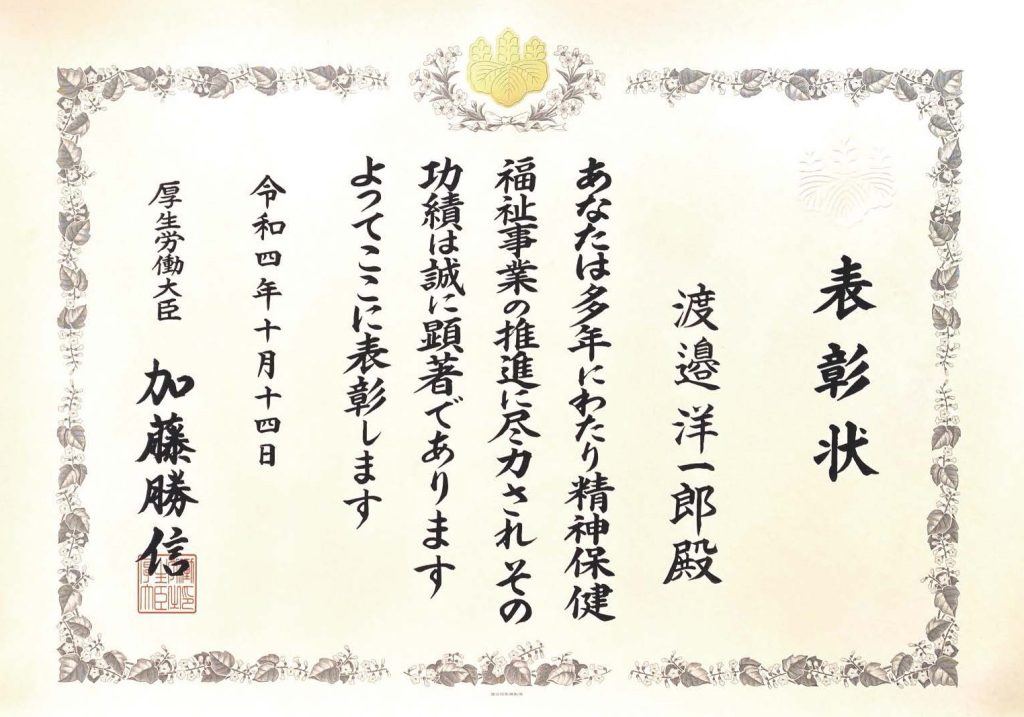 表彰状
渡邉洋一郎殿
あなたは多年にわたり精神保健
福祉事業の推進に尽力されその
功績は誠に顕著であります
よってここに表彰します
令和四年十月十四日
厚生労働大臣
加藤勝信